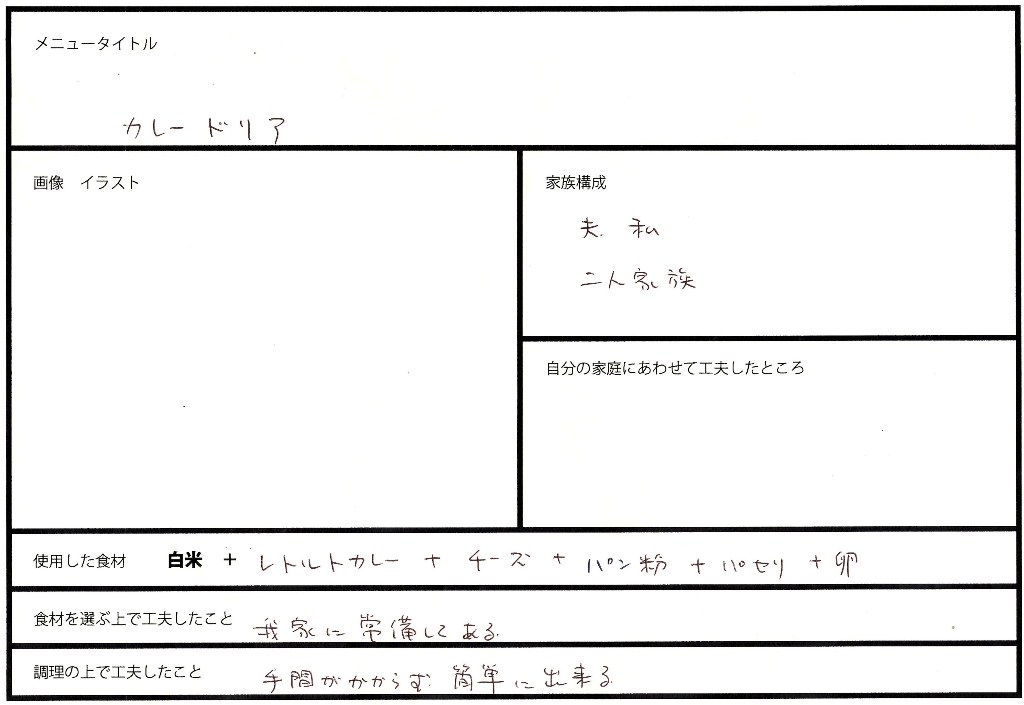 メニュータイトル
カレードリア
画像　イラスト
家族構成
夫. 私
二人家族
自分の家庭にあわせて工夫したところ
使用した食材　白米 + レトルトカレー + チーズ + パン粉 + パセリ + 卵
食材を選ぶ上で工夫したこと　我家に常備してある.
調理の上で工夫したこと　手間がかからず. 簡単に出来る.